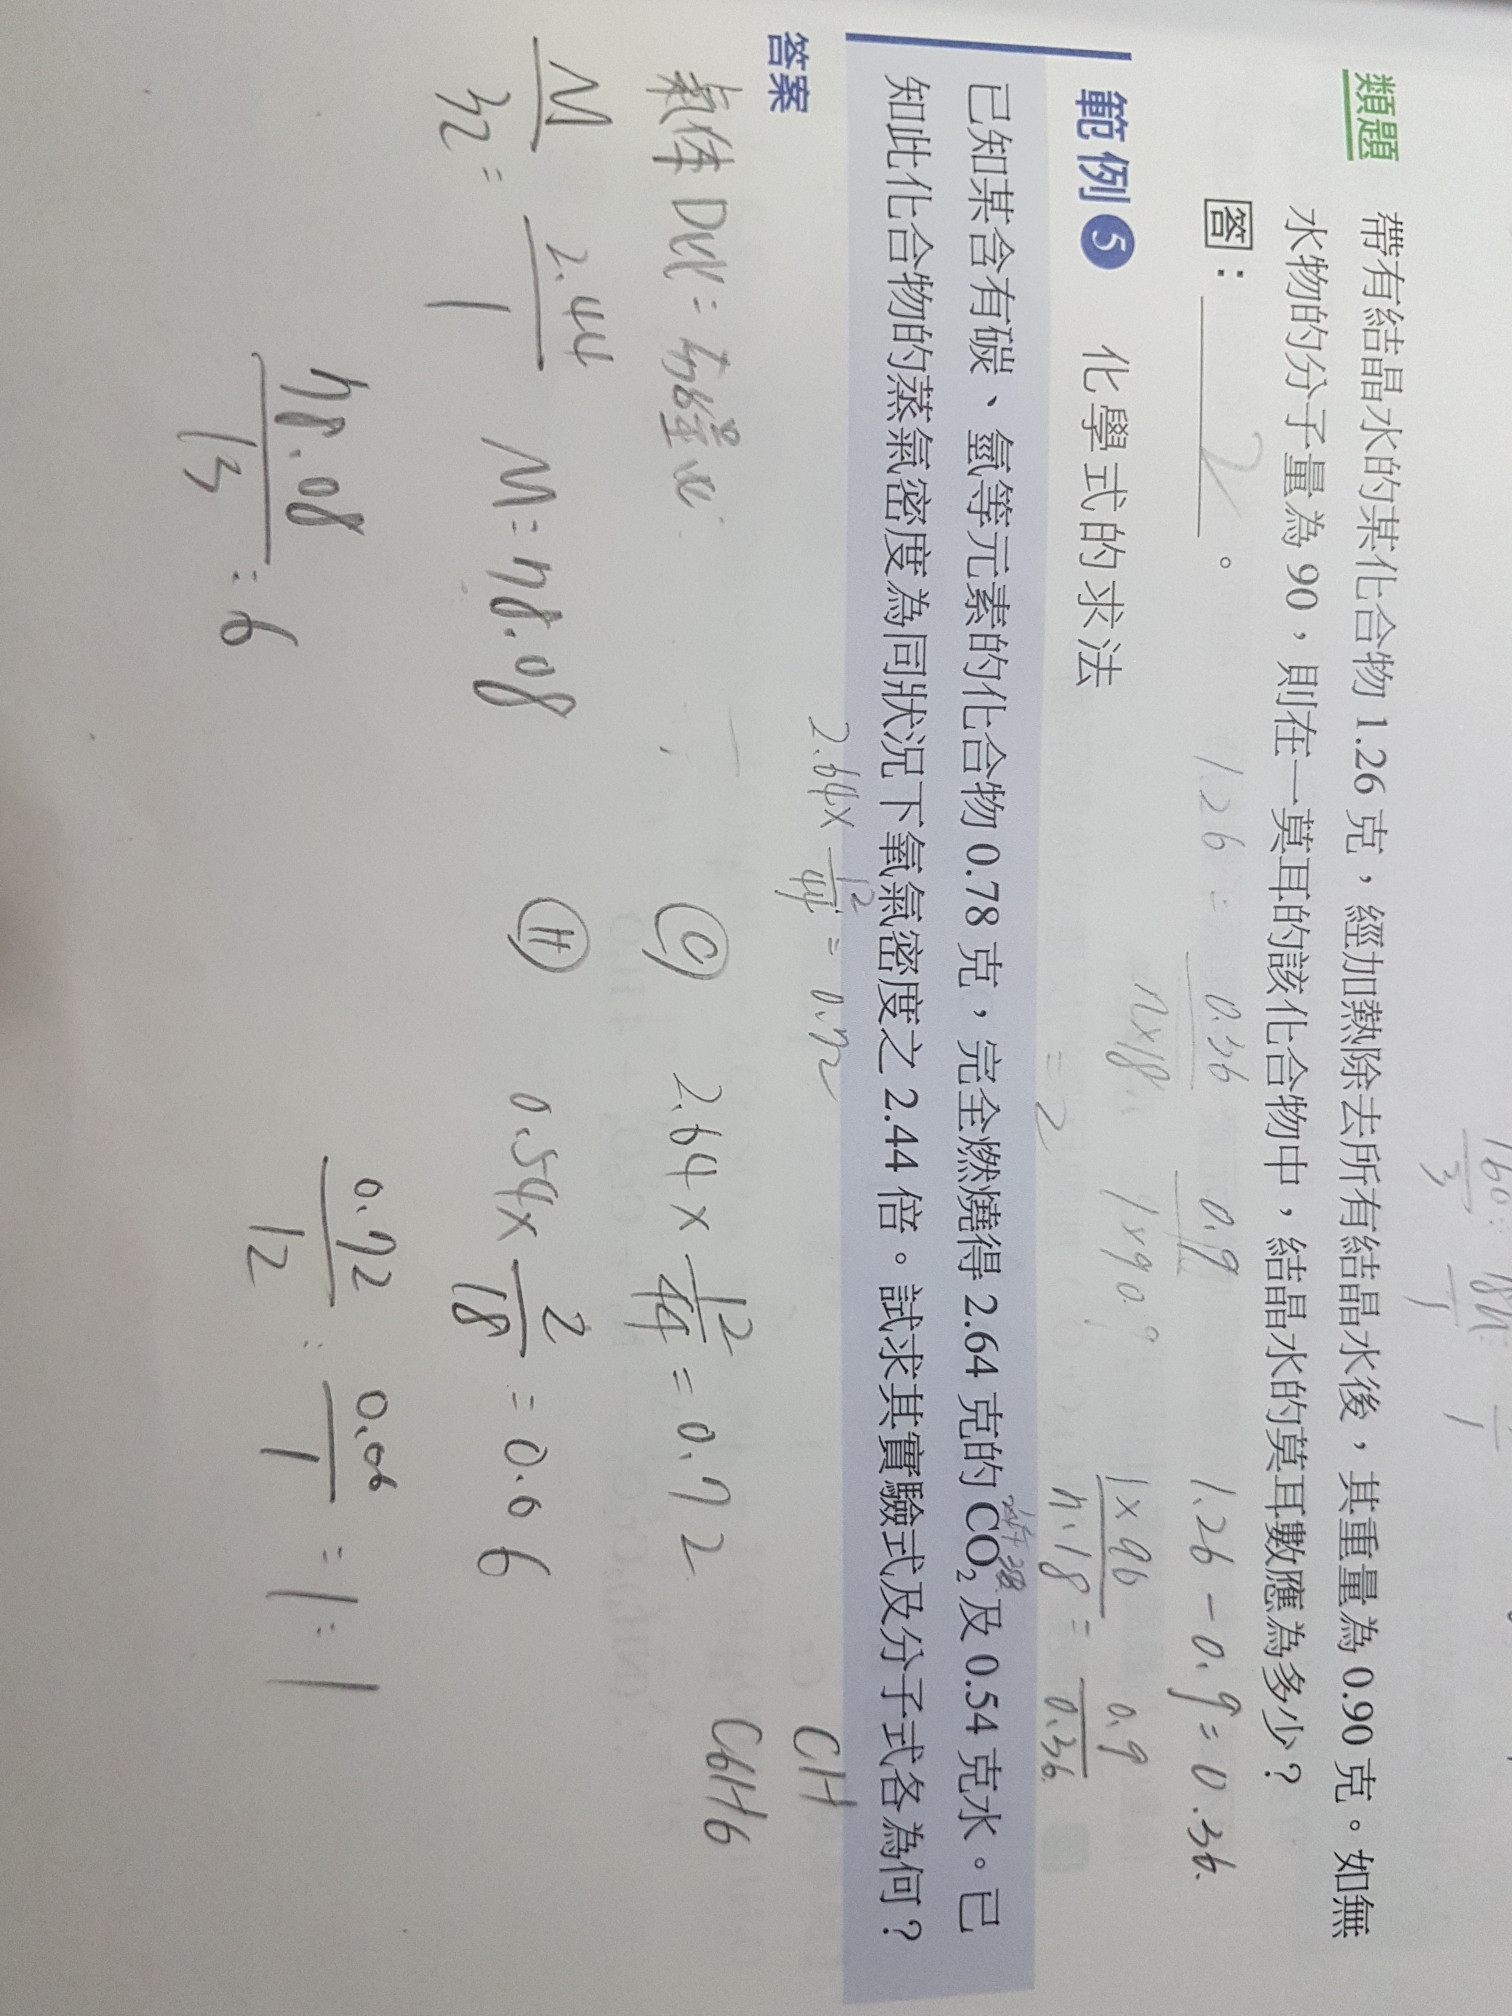 160 : 18n
3 1 1
類題 帶有結晶水的某化合物 1.26 克，經加熱除去所有結晶水後，其重量為 0.90 克。如無
水物的分子量為 90，則在一莫耳的該化合物中，結晶水的莫耳數應為多少？
答：2。
1.26 = 0.36 0.9
1.26 - 0.9 = 0.36
n×18 1×90
= 2
1×90 / n·18 = 0.9 / 0.36
範例 5 化學式的求法
已知某含有碳、氫等元素的化合物 0.78 克，完全燃燒得 2.64 克的 CO₂ 及 0.54 克水。已
知此化合物的蒸氣密度為同狀況下氧氣密度之 2.44 倍。試求其實驗式及分子式各為何？
2.64 × 12/44 = 0.72
CH
答案
C6H6
氣体
C 2.64 × 12/44 = 0.72
M/32 = 2.44/1 M = 78.08
H 0.54 × 2/18 = 0.06
78.08/13 = 6
0.72/12 : 0.06/1 = 1 : 1